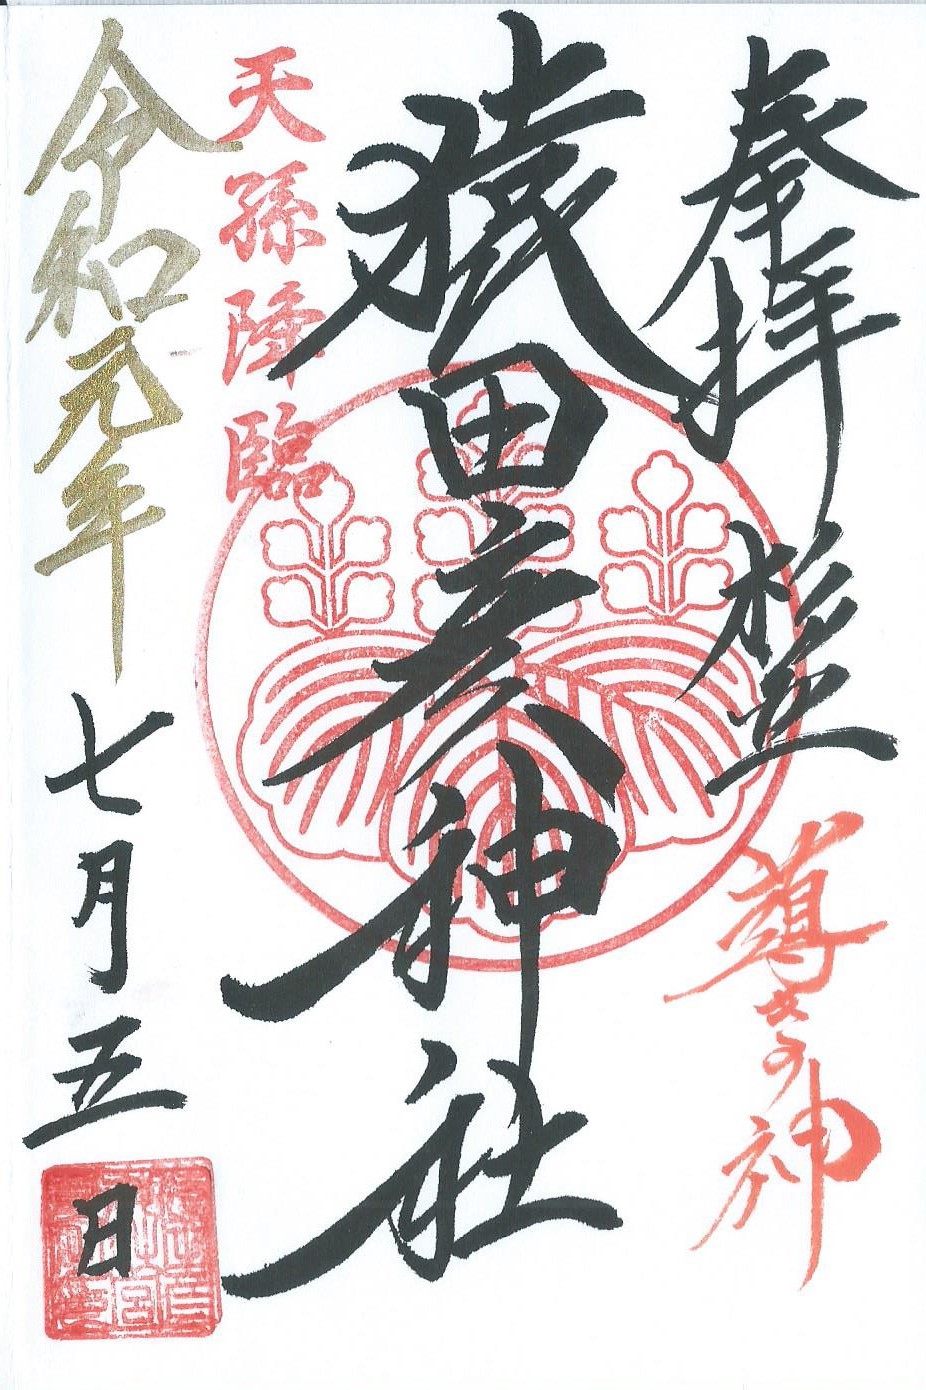 奉拝 杉並 導きの神
猿田彦神社
天孫降臨
令和元年七月五日